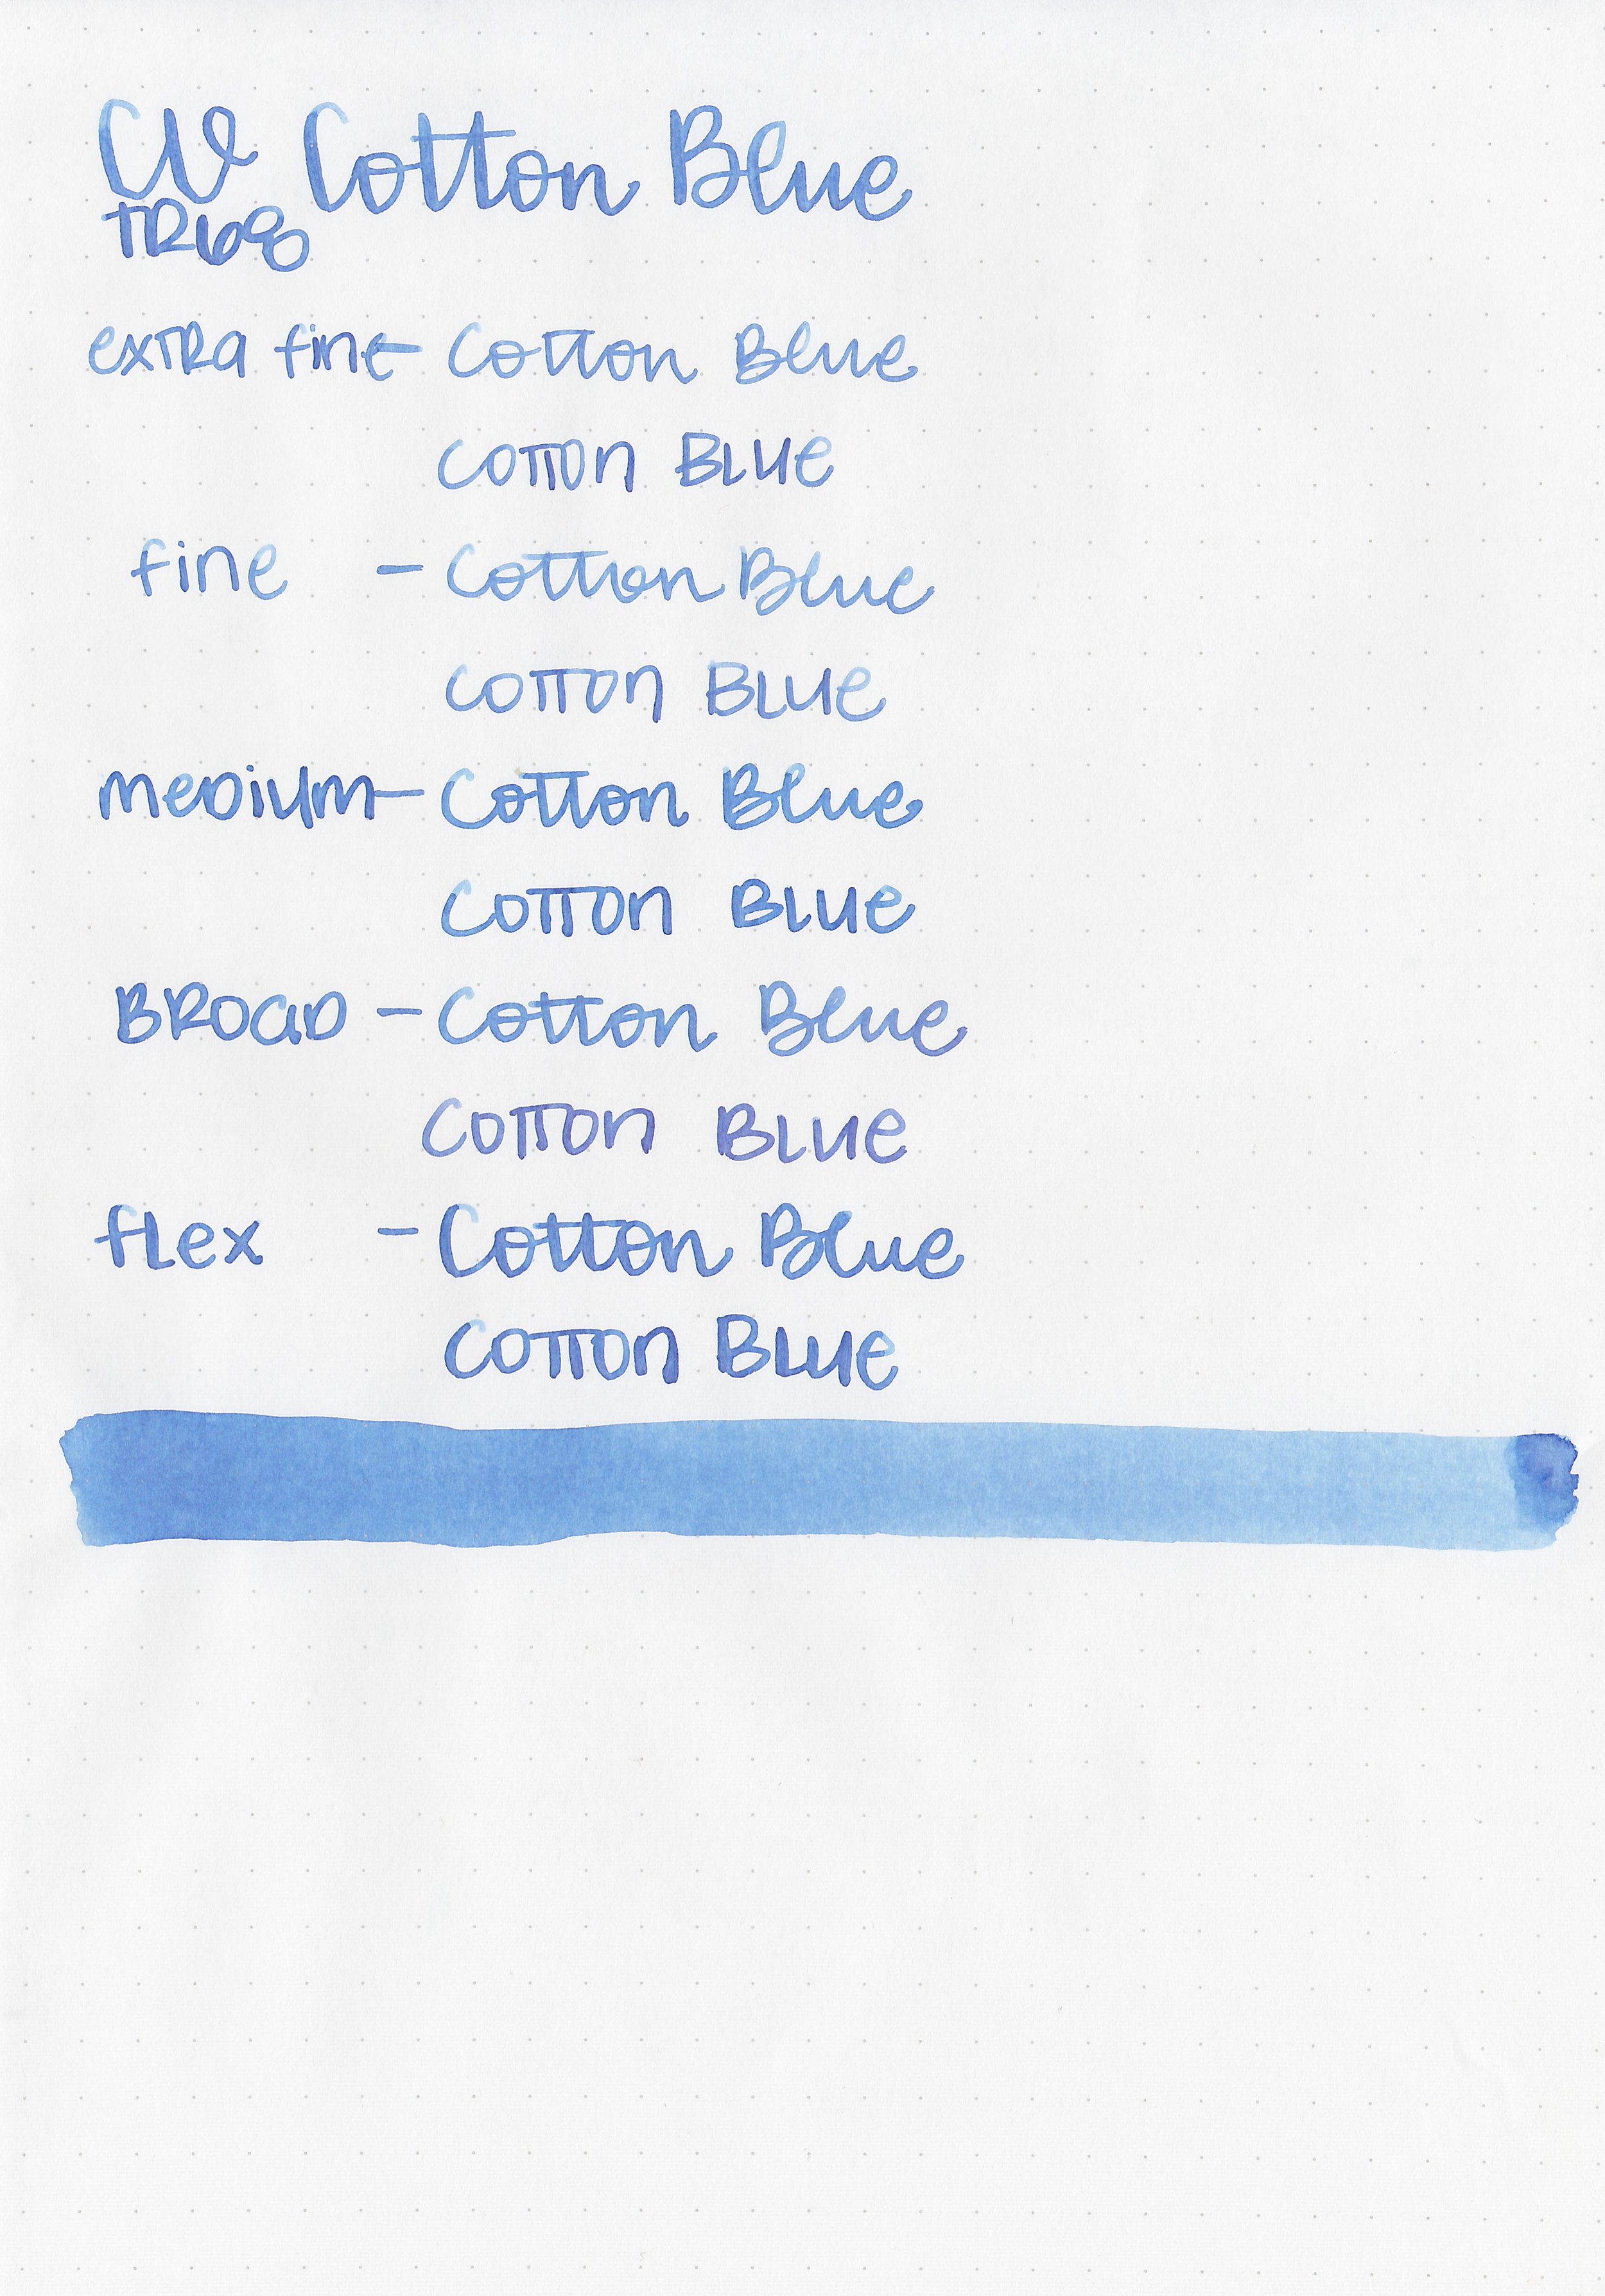 CV Cotton Blue
TR68
extra fine - Cotton Blue
Cotton Blue
fine - Cotton Blue
Cotton Blue
medium - Cotton Blue
Cotton Blue
Broad - Cotton Blue
Cotton Blue
flex - Cotton Blue
Cotton Blue